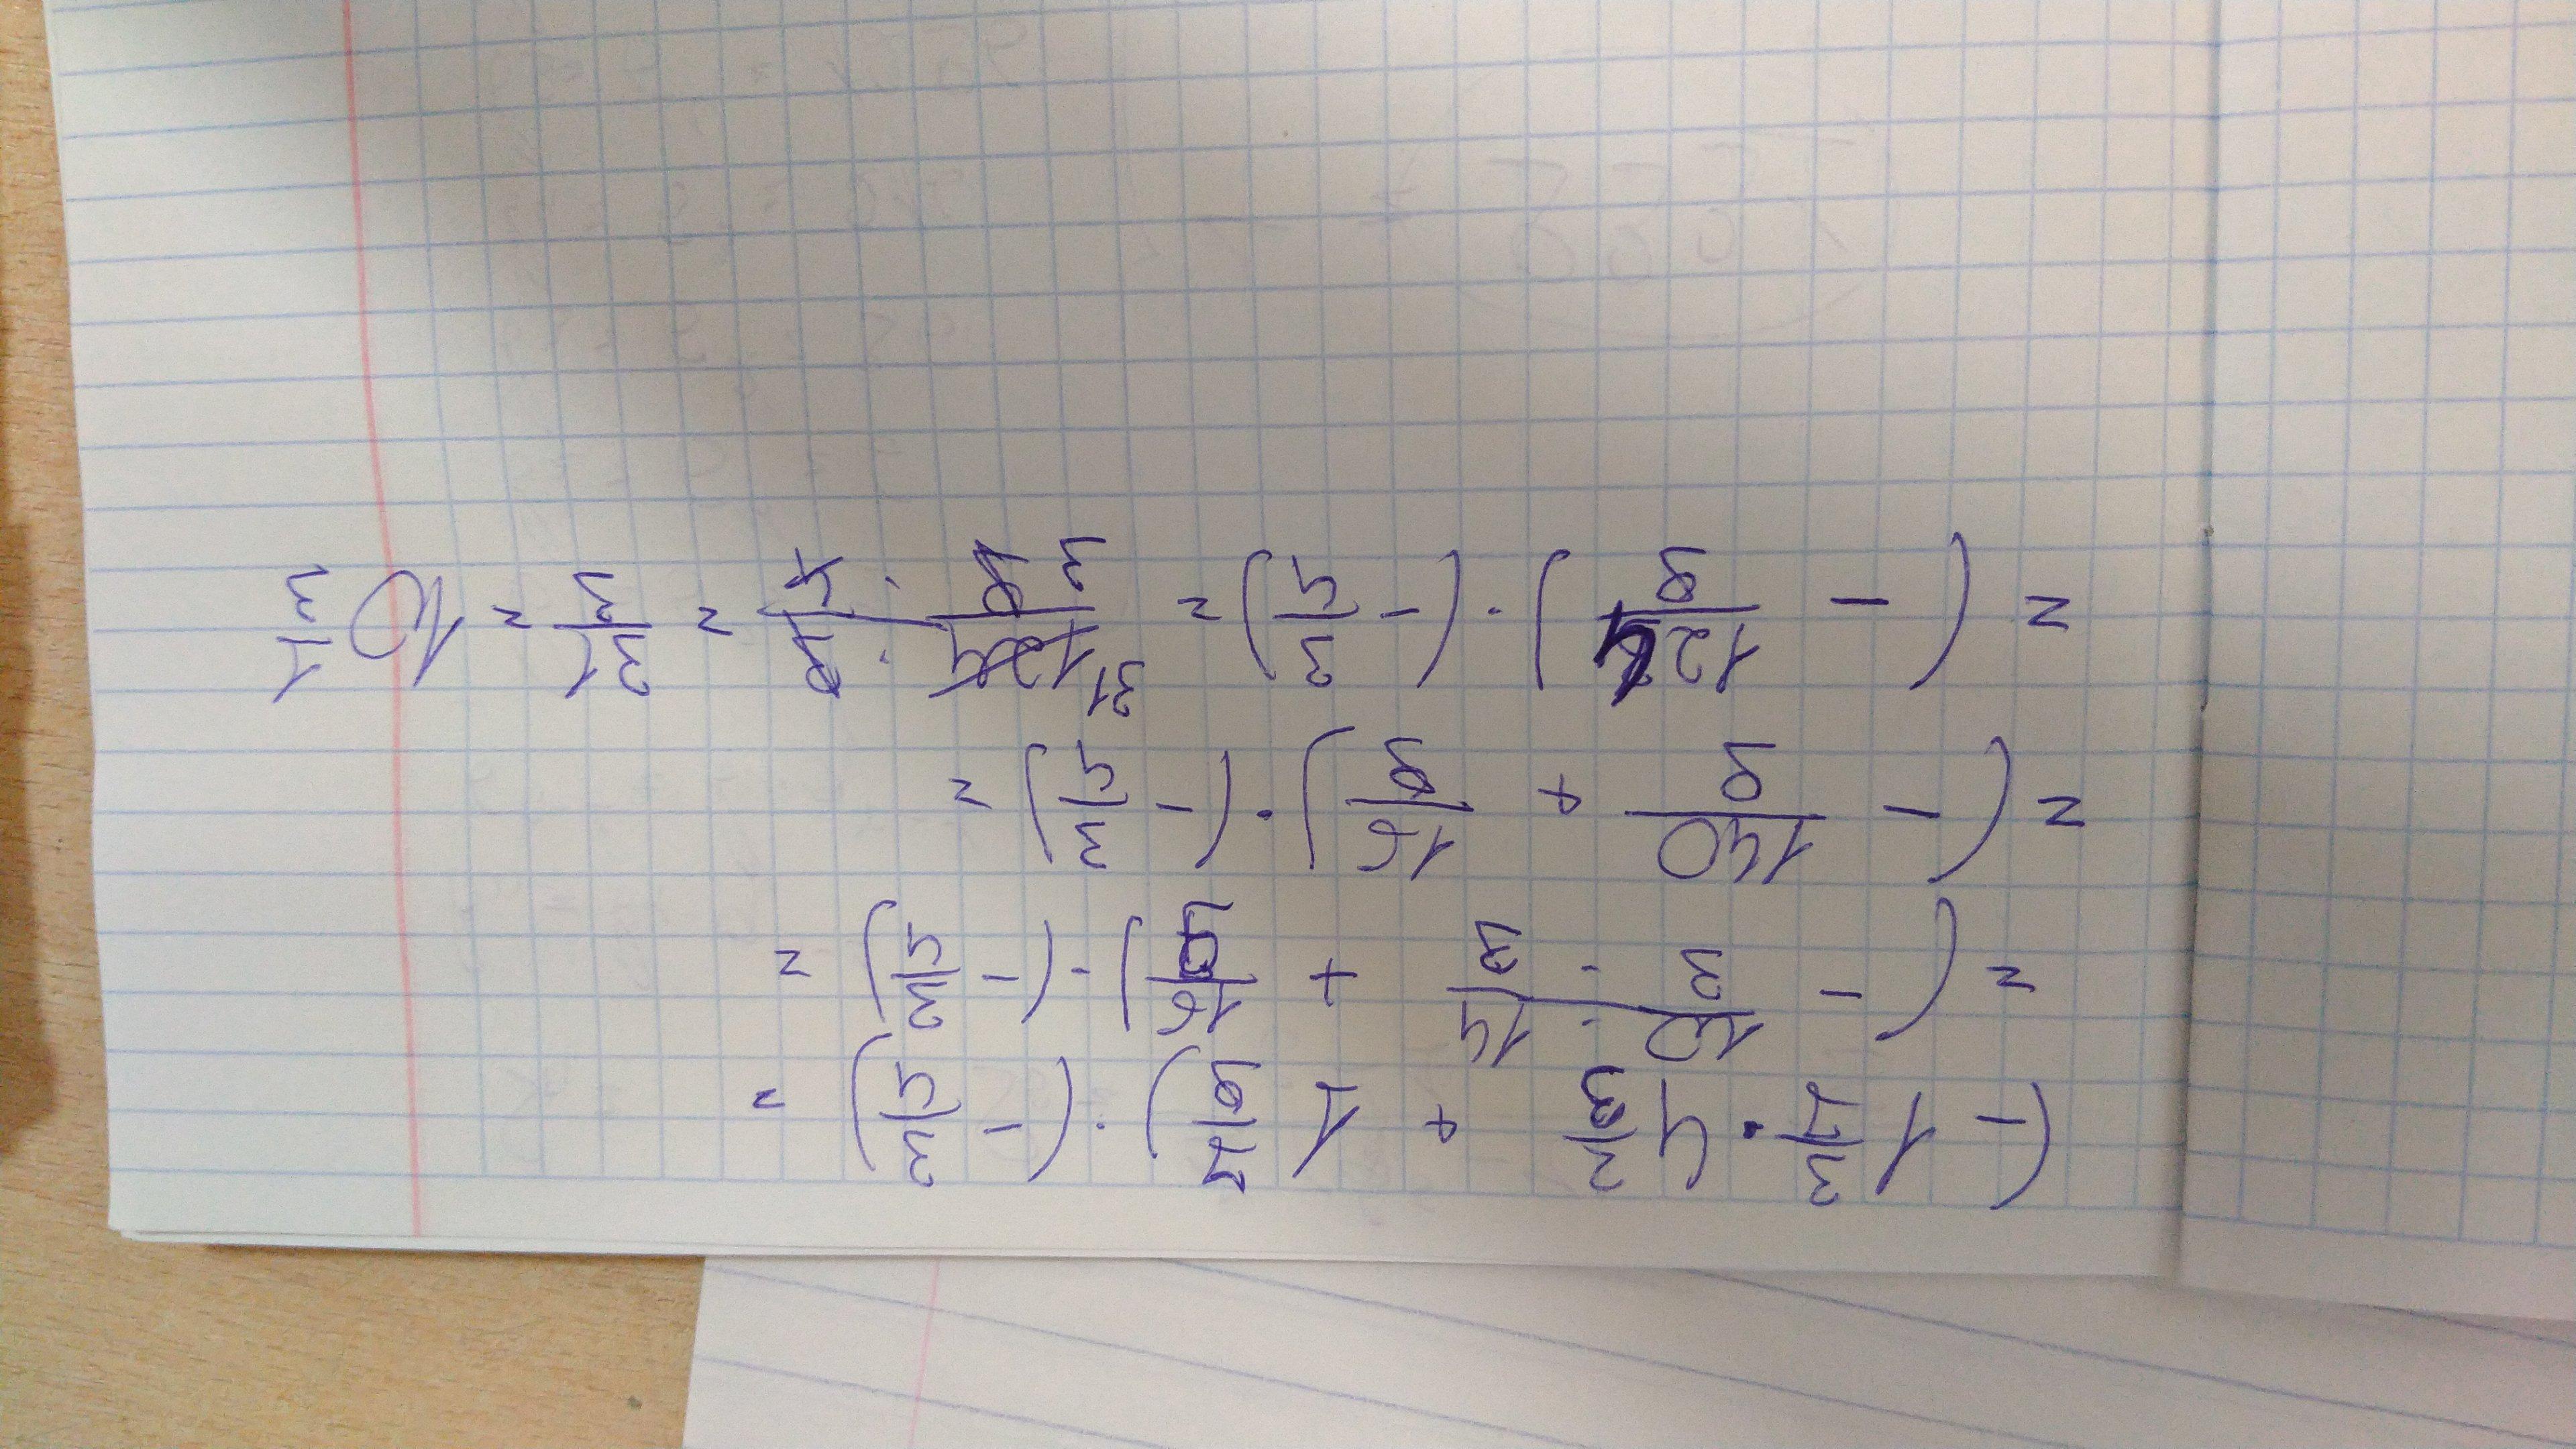 (-1 3/7 · 4 2/3 + 1 7/9) · (- 3/4) =
= (- 10 · 14 / 3 · 3 + 16/9) · (- 3/4) =
= (- 140/9 + 16/9) · (- 3/4) =
= (- 124/9) · (- 3/4) = 31 124 · 3 / 3 9 · 4 = 31/3 = 10 1/3